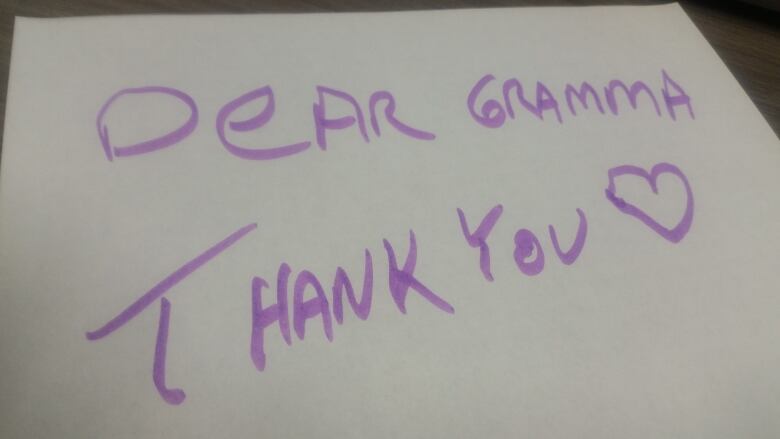 DeAR GRAMMA
THANK YOU